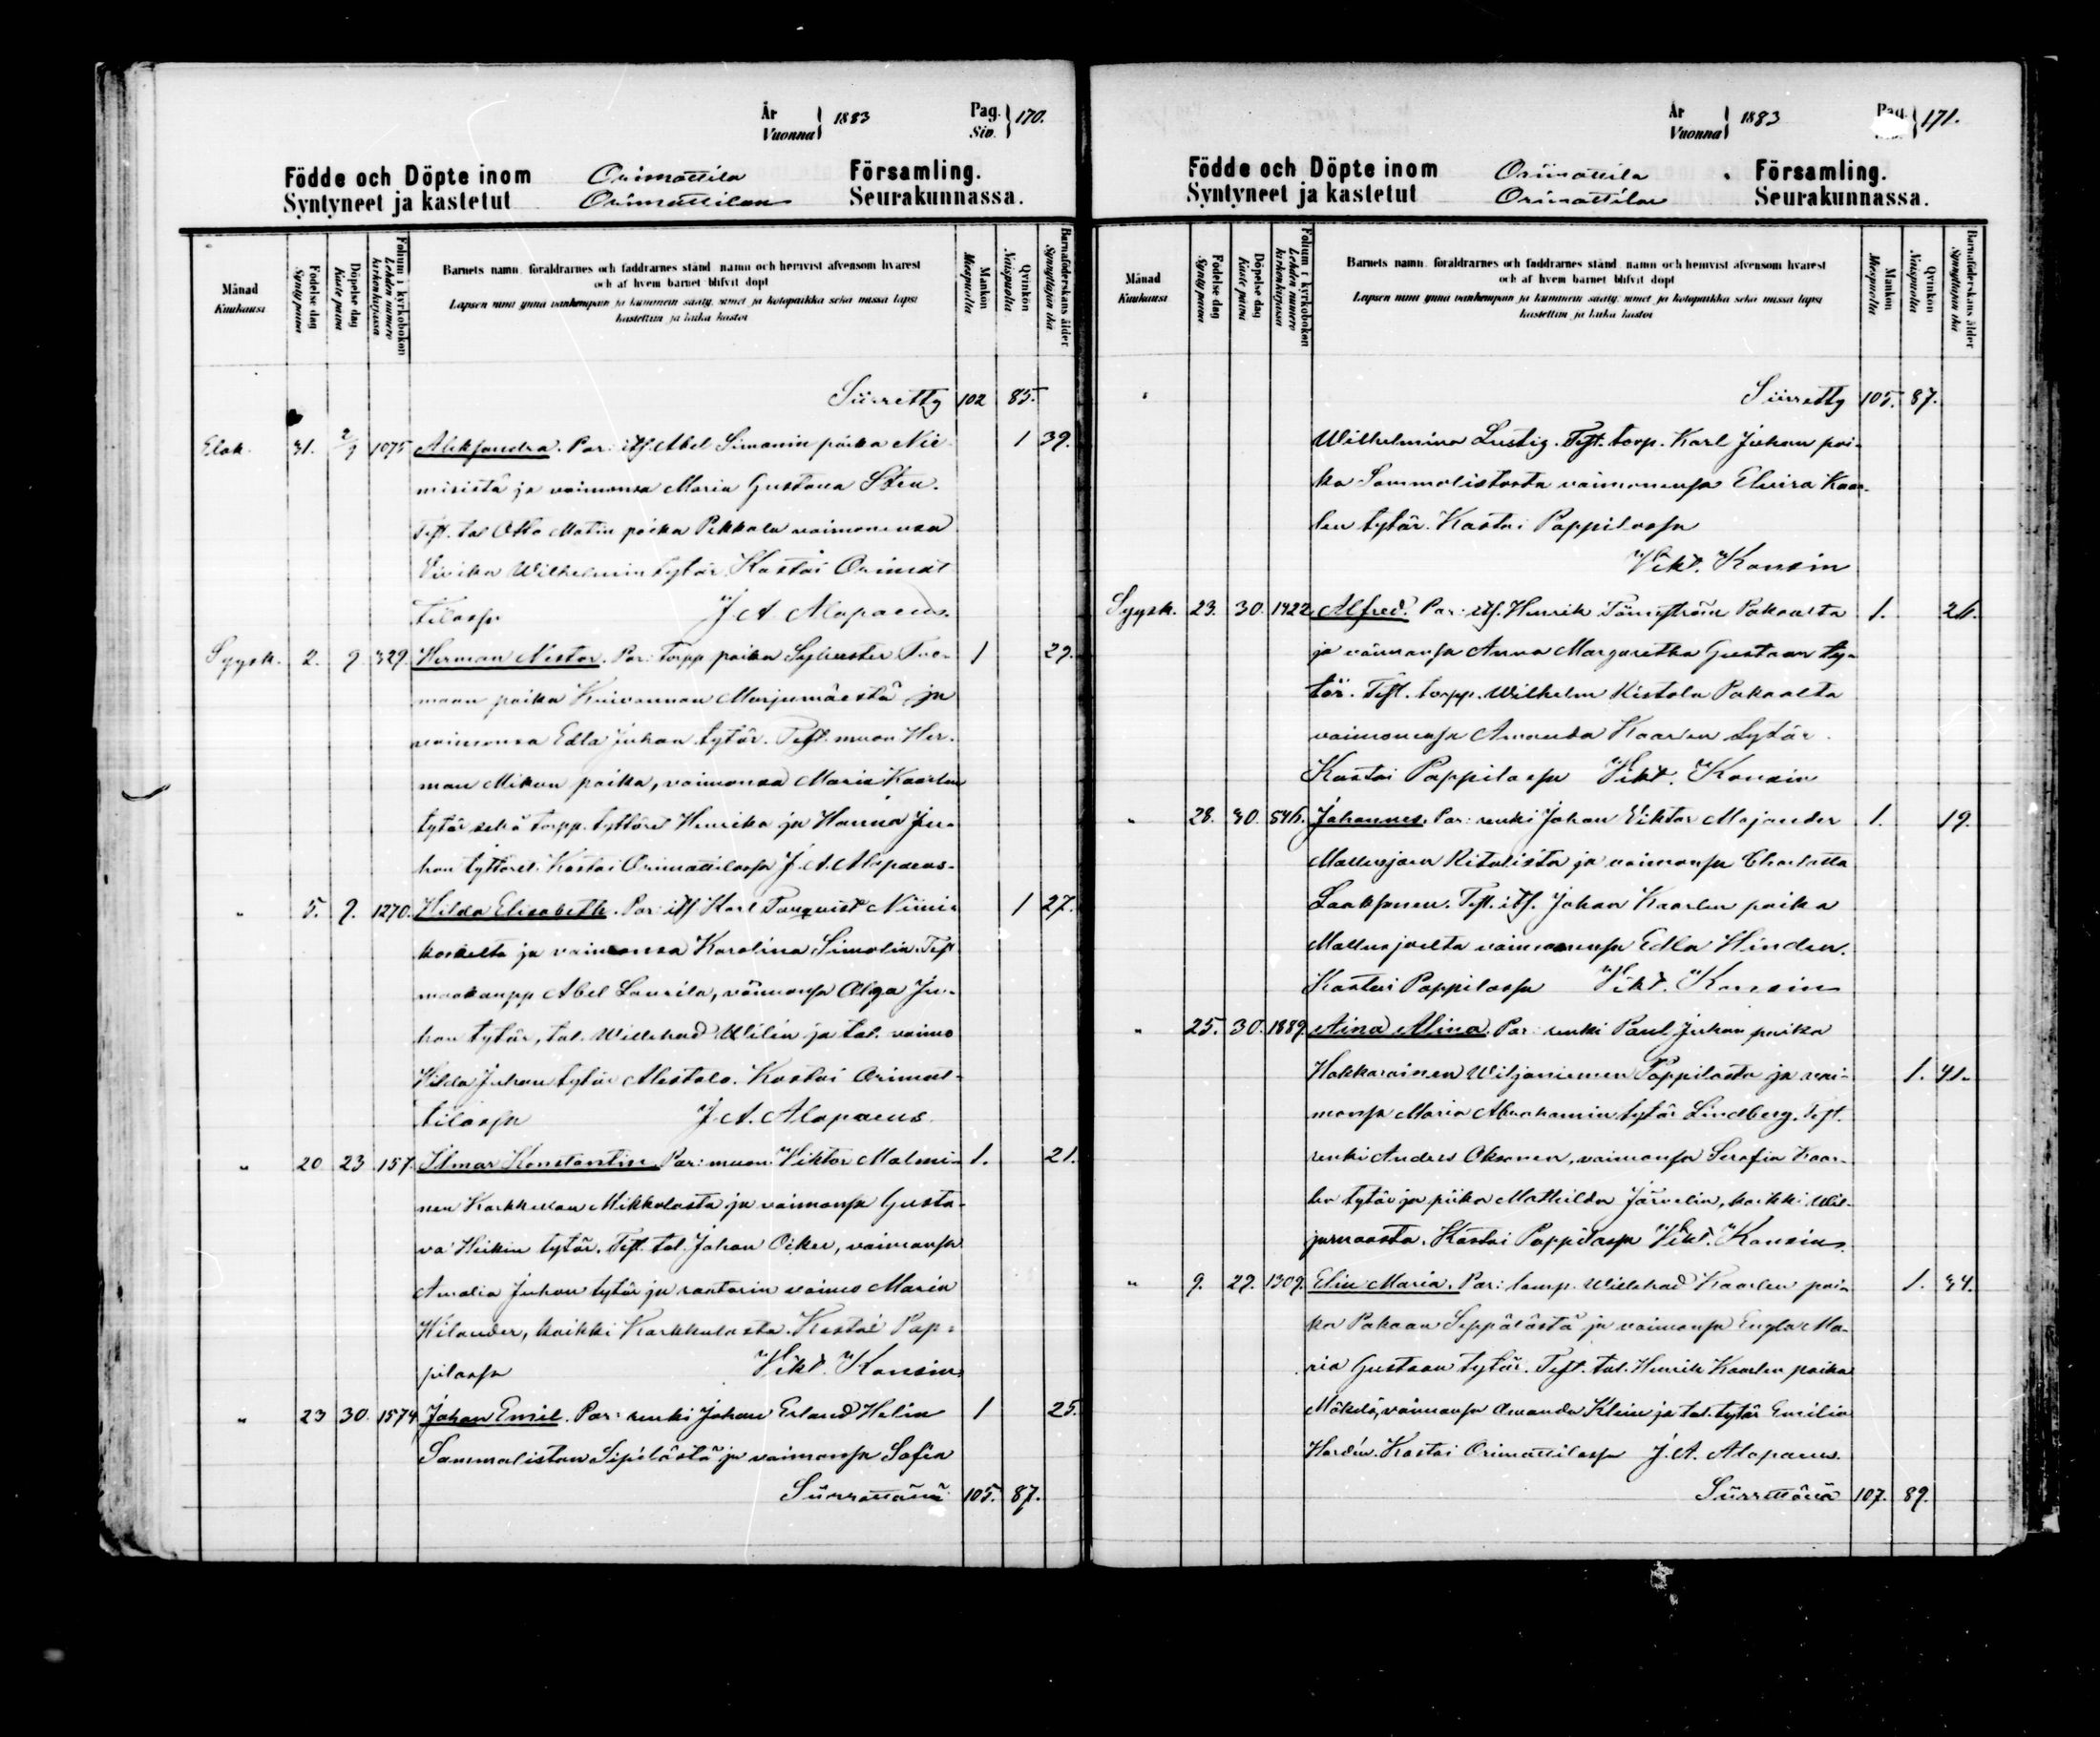 År
Vuonna } 1883 Pag.
Siv. } 170.
Födde och Döpte inom Orimattila Församling.
Syntyneet ja kastetut Orimattilan Seurakunnassa.
Månad
Kuukausi
Födelse dag
Synty päivä
Döpelse dag
Kaste päivä
Folium i kyrkoboken
Lehden numero
kirkonkirjassa
Barnets namn, föräldrarnes och faddrarnes stånd, namn och hemvist äfvensom hvarest
och af hvem barnet blifvit döpt
Lapsen nimi ynnä vanhempain ja kummein sääty, nimet ja kotopaikka sekä missä lapsi
kastettiin ja kuka kastoi
Mankön
Miespuolta
Qvinkön
Naispuolta
Barnaföderskans ålder
Synnyttäjän ikä
Siirretty 102 85.
Elok. 31. 2/9 1075 Aleksandra. Par: itj Abel Simonin poika Nie- 1 39.
misistä ja vaimonsa Maria Gustava Sten.
Test. tal Otto Matin poika Pekkala vaimonensa
Viika Wilhelmin tytär. Kastoi Orimat
tilassa J. A. Alopaeus.
Syysk. 2. 9. 329. Herman Nestor. Par: torpp poika Sylvester Tuo- 1 29.
maan poika Kuivannon Marjumäestä ja
vaimonsa Edla Juhan tytär. Test. muon Her-
man Mikon poika, vaimonsa Maria Kaarlen
tytär sekä torpp. tyttäret Henrika ja Hanna Ju-
han tyttäret. Kastoi Orimattilassa J. A. Alopaeus.
" 5. 9. 1270. Hilda Elisabeth. Par: itj Karl Tanqvist Niini- 1 27.
koskelta ja vaimonsa Karolina Simolin. Test
maakaupp Abel Laurila, vaimonsa Olga Ju-
han tytär, tal. Willehad Wilén ja tal. vaimo
Hilda Juhan tytär Alestalo. Kastoi Orimat-
tilassa J. A. Alopaeus.
" 20 23 157. Ilmar Konstantin. Par: muon. Viktor Malmi- 1. 21.
nen Karkkulan Mikkolasta ja vaimonsa Gusta-
va Heikin tytär. Test. tal. Johan Oiker, vaimonsa
Amalia Juhan tytär ja raatarin vaimo Maria
Kilander, kaikki Karkkulasta. Kastoi Pap-
pilassa Vikt. Konsin
" 23 30. 1574 Johan Emil. Par: renki Johan Erland Helin 1 25.
Sammaliston Sipilästä ja vaimonsa Sofia
Siirrettävä 105. 87.
År
Vuonna } 1883 Pag. } 171.
Födde och Döpte inom Orimattila Församling.
Syntyneet ja kastetut Orimattilan Seurakunnassa.
Månad
Kuukausi
Födelse dag
Synty päivä
Döpelse dag
Kaste päivä
Folium i kyrkoboken
Lehden numero
kirkonkirjassa
Barnets namn, föräldrarnes och faddrarnes stånd, namn och hemvist äfvensom hvarest
och af hvem barnet blifvit döpt
Lapsen nimi ynnä vanhempain ja kummein sääty, nimet ja kotopaikka sekä missä lapsi
kastettiin ja kuka kastoi
Mankön
Miespuolta
Qvinkön
Naispuolta
Barnaföderskans ålder
Synnyttäjän ikä
Siirretty 105. 87.
Wilhelmina Lustig. Test. torp. Karl Juhan poi-
ka Sammalistosta vaimonensa Elvira Kaar-
len tytär. Kastoi Pappilassa
Vikt. Konsin
Syysk. 23. 30. 1422 Alfred. Par: itj. Henrik Törnström Pakaalta 1. 26.
ja vaimonsa Anna Margaretha Gustaan ty-
tär. Test. torpp. Wilhelm Kistola Pakaalta
vaimonensa Amanda Kaarlen tytär.
Kastoi Pappilassa Vikt. Konsin
" 28. 30. 546. Johannes. Par: renki Johan Viktor Majander 1. 19.
Mallusjoen Ritalista ja vaimonsa Charlotta
Laaksonen. Test. itj. Johan Kaarlen poika
Mallusjoelta vaimonensa Edla Hindén.
Kastoi Pappilassa Vikt. Konsin
" 25. 30. 1889. Aina Alina. Par: renki Paul Juhan poika
Hakkarainen Wiljaniemen Pappilasta ja vai- 1. 41.
monsa Maria Abrahamin tytär Lindberg. Test.
renki Anders Oksanen, vaimonsa Serafia Kaar-
len tytär ja piika Mathilda Järvelin, kaikki Wil-
jamaasta. Kastoi Pappilassa Vikt. Konsin.
" 9. 29. 1309. Elin Maria. Par: lamp. Willehad Kaarlen poi- 1. 34.
ka Pakaan Seppälästä ja vaimonsa Engla Ma-
ria Gustaan tytär. Test. tal. Henrik Kaarlen poika
Mäkelä, vaimonsa Amanda Klein ja tal. tytär Emilia
Hordén. Kastoi Orimattilassa J. A. Alopaeus.
Siirrettävä 107. 89.